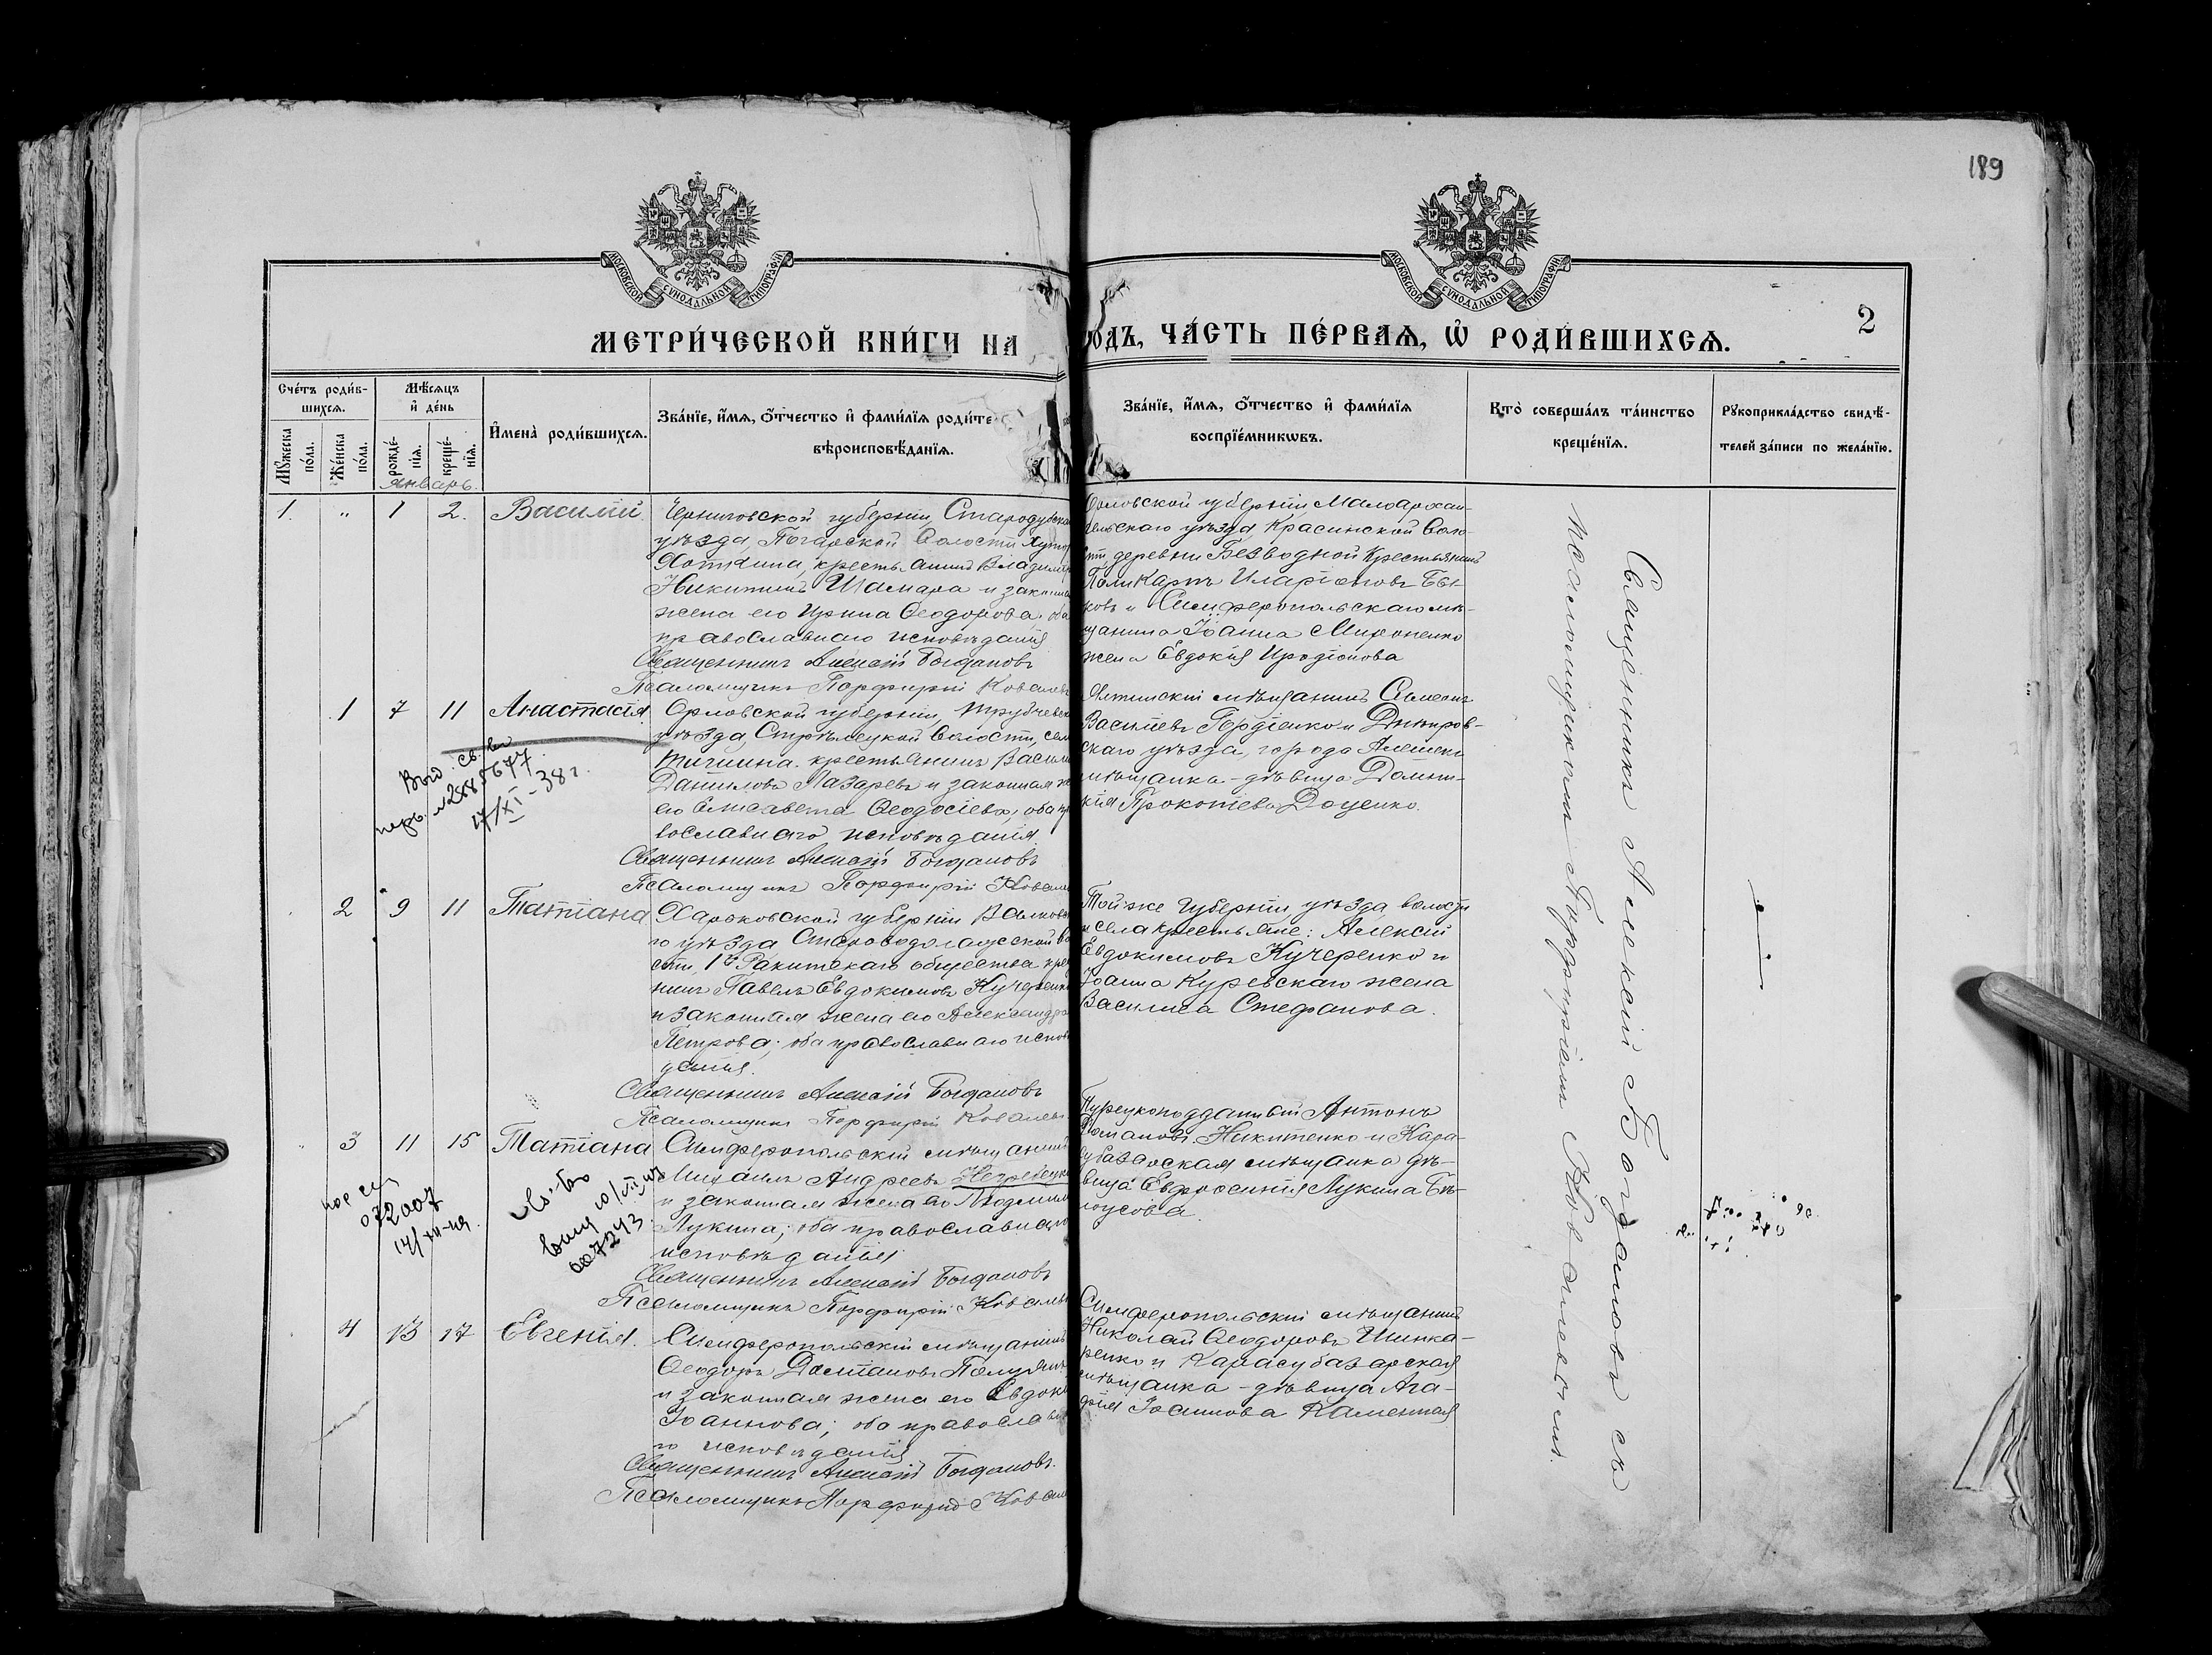 189
МОСКОВСКОЙ СУНОДАЛЬНОЙ ТИПОГРАФІИ
МОСКОВСКОЙ СУНОДАЛЬНОЙ ТИПОГРАФІИ
МЕТРИ́ЧЕСКОЙ КНИ́ГИ НА
ОДЪ, ЧА́СТЬ ПЕ́РВАѦ, Ѡ РОДИ́ВШИХСѦ.
2
Сче́тъ роди́в-
шихсѧ.
Мꙋ́жеска по́ла.
Же́нска по́ла.
Мѣ́сѧцъ
и҆ де́нь
рожде́-
нїѧ.
креще́-
нїѧ.
И҆мена̀ роди́вшихсѧ.
Зва́нїе, и҆́мѧ, ѻ҆́тчество и҆ фами́лїѧ роди́те
вѣроисповѣ́данїѧ.
Зва́нїе, и҆́мѧ, ѻ҆́тчество и҆ фами́лїѧ
воспрїе́мникѡвъ.
Кто̀ соверша́лъ та́инство
креще́нїѧ.
Рꙋкоприкла́дство свидѣ́-
телей за́писи по жела́нїю.
Январь.
1. " 1 2. Василій.
Черниговской губерніи, Стародубска
уѣзда, Погарской волости хутор
крестьянинъ Владимір
Никитинъ Шамара и законна
жена его Ирина Ѳеодорова, оба
православнаго исповѣданія
Священникъ Алексій Богдановъ
Псаломщикъ Порфирій Ковалев
Орловской губерніи Малоархан-
гельскаго уѣзда, Красинской воло-
сти деревни Безводной крестьянинъ
Поликарпъ Иларіоновъ Бы-
ковъ и Симферопольскаго мѣ-
щанина Іоанна Мироненко
жена Евдокія Иродіонова
1 7 11 Анастасія.
Орловской губерніи, Трубчевск
уѣзда, Стрѣлецкой волости, сел
крестьянинъ Васил
Даніиловъ Лазаревъ и законная ж
его Елисавета Ѳеодосіева, оба пр
вославнаго исповѣданія.
Священникъ Алексій Богдановъ
Псаломщикъ Порфирій Ковале
Выд. св-во
2885677
17/XI-38 г.
Ялтинскій мѣщанинъ Симеонъ
Васильевъ Гордіенко и Днѣпров-
скаго уѣзда, города Алешекъ
мѣщанка-дѣвица Домни-
кія Прокопіева Доценко.
2 9 11 Татіана
Харьковской губерніи Валковск
го уѣзда Староводолажской во
сти, 1го Ракитскаго общества кре
нинъ Павелъ Евдокимовъ Кучеренко
и законная жена его Александра
Петрова; оба православнаго испов
данія.
Священникъ Алексій Богдановъ
Псаломщикъ Порфирій Ковалев
Той-же губерніи уѣзда волости
и села крестьяне: Алексій
Евдокимовъ Кучеренко и
Іоанна Куревскаго жена
Василиса Стефанова.
3 11 15 Татіана
Симферопольскій мѣщанинъ
Михаилъ Андреевъ
и законная жена его Людмила
Лукина; оба православнаго
исповѣданія
Священникъ Алексій Богдановъ
Псаломщикъ Порфирій Ковалев
072007
св-во
007243
Турецкоподданный Антонъ
Романовъ Никитенко и Кара-
субазарская мѣщанка дѣ-
вица Евфросинія Лукина Бѣ-
лоусова.
4 13 17 Евгенія.
Симферопольскій мѣщанинъ
Ѳеодоръ
и законная жена его Евдокі
Іоаннова; оба православна
го исповѣданія
Священникъ Алексій Богдановъ.
Псаломщикъ Порфирій Ковале
Симферопольскій мѣщанинъ
Николай Ѳеодоровъ Шинка-
ренко и Карасубазарская
мѣщанка-дѣвица Ага-
фія Іоаннова Каменная
Священникъ Алексій Богдановъ съ
псаломщикомъ Порфиріемъ Ковалевымъ.